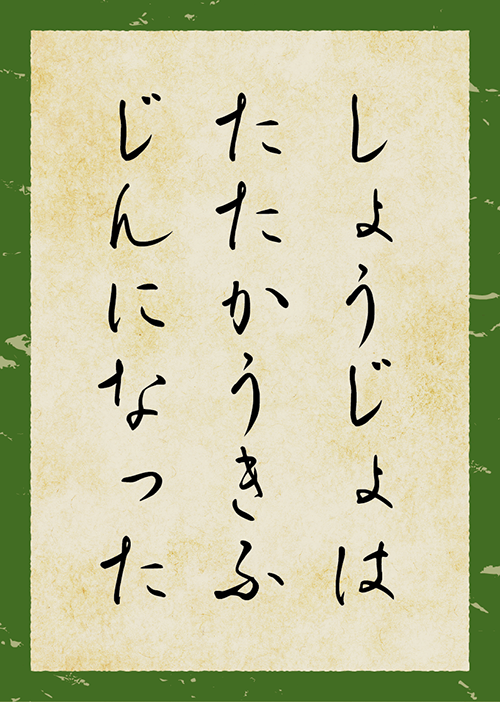 しょうじょは
たたかうきふ
じんになった